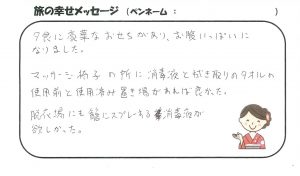 旅の幸せメッセージ (ペンネーム : )
夕食に豪華なおせちがあり、お腹いっぱいに
なりました。
マッサージ椅子の所に消毒液と拭き取りのタオルの
使用前と使用済み置き場があれば良かった。
脱衣場にも籠にスプレーする消毒液が
欲しかった。